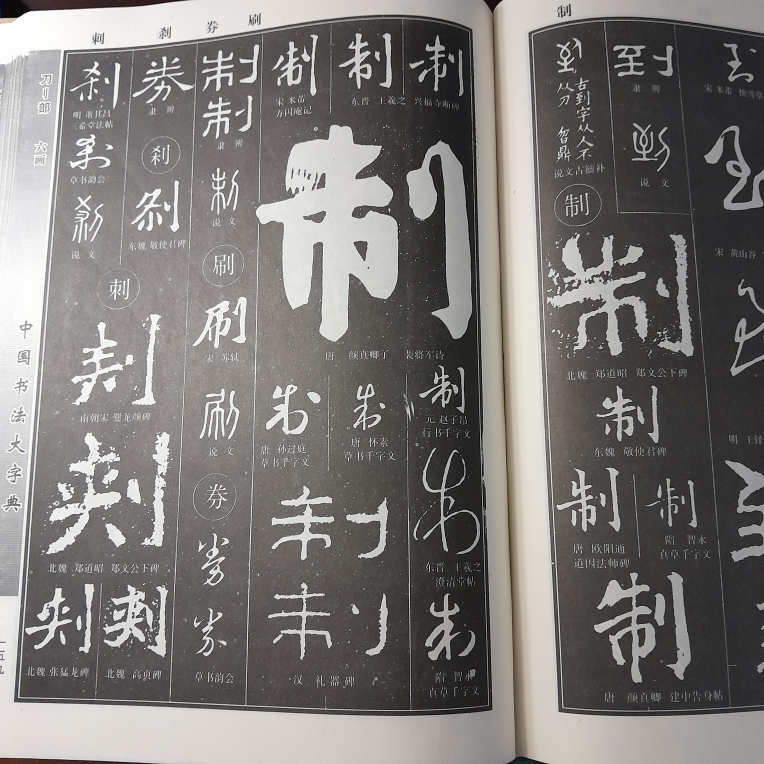 刺 刹 券 刷
制
刀刂部 六画
中国书法大字典
制
宋 米芾
方圆庵记
制
东晋 王羲之
制
兴福寺断碑
制
唐 颜真卿 裴将军诗
制
唐 孙过庭
草书千字文
制
唐 怀素
草书千字文
制
元 赵子昂
行书千字文
制
东晋 王羲之
澄清堂帖
制
制
汉 礼器碑
制
隋 智永
真草千字文
制
制
隶辨
制
说文
刷
刷
宋 苏轼
刷
说文
券
券
券
草书韵会
券
隶辨
刹
刹
东魏 敬使君碑
刹
明 董其昌
三希堂法帖
刹
草书韵会
刹
说文
刺
刺
南朝宋 爨龙颜碑
刺
北魏 郑道昭 郑文公下碑
刺
北魏 张猛龙碑
刺
北魏 高贞碑
到
宋 米芾
到
宋 黄山谷
明 王铎
到
隶辨
到
说文
古到字从人不
从刀 智鼎
说文古籀补
制
制
北魏 郑道昭 郑文公下碑
制
东魏 敬使君碑
制
唐 欧阳通
道因法师碑
制
隋 智永
真草千字文
制
唐 颜真卿 建中告身帖